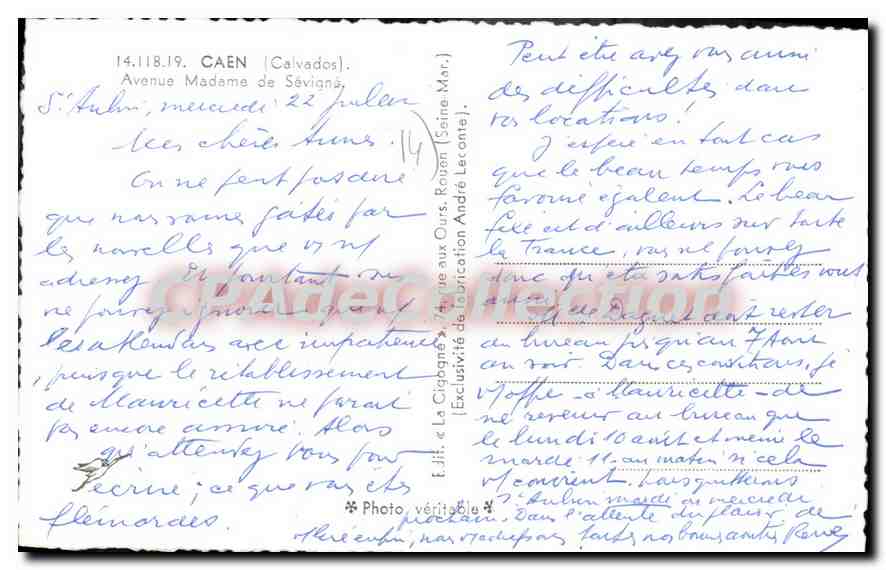 14.118.19. CAEN (Calvados).
Avenue Madame de Sévigné.
St Aubin, mercredi 22 juillet
14
Mes chères
On ne peut pas dire
que nous soyons gâtés par
les nouvelles que vs ns
adressez. Et pourtant vous
ne pouvez ignorer que ns
les attendons avec impatience
, puisque le rétablissement
de Mauricette ne paraît
pas encore assuré. Alors
qu'attendez vous pour
écrire ; ce que vous êtes
flémardes.
Edit. « La Cigogne », 74, rue aux Ours, Rouen (Seine-Mar.)
(Exclusivité de fabrication André Leconte).
Photo véritable
CPAdeCollection
Peut être avez vous aussi
des difficultés dans
vos locations !
J'espère en tout cas
que le beau temps vous
favorise également. Le beau
fixe est d'ailleurs sur toute
la France, vous ne pouvez
donc qu'être satisfaites vous
aussi.
doit rester
au bureau jusqu'au 7 Août
au soir. Dans ces conditions, je
vs offre - à Mauricette - de
ne revenir au bureau que
le lundi 10 août et même le
mardi 11 au matin si cela
vs convient. Nous quitterons
St Aubin mardi ou mercredi
prochain. Dans l'attente du plaisir de
vs lire enfin, nous vs adressons toutes nos bonnes amitiés